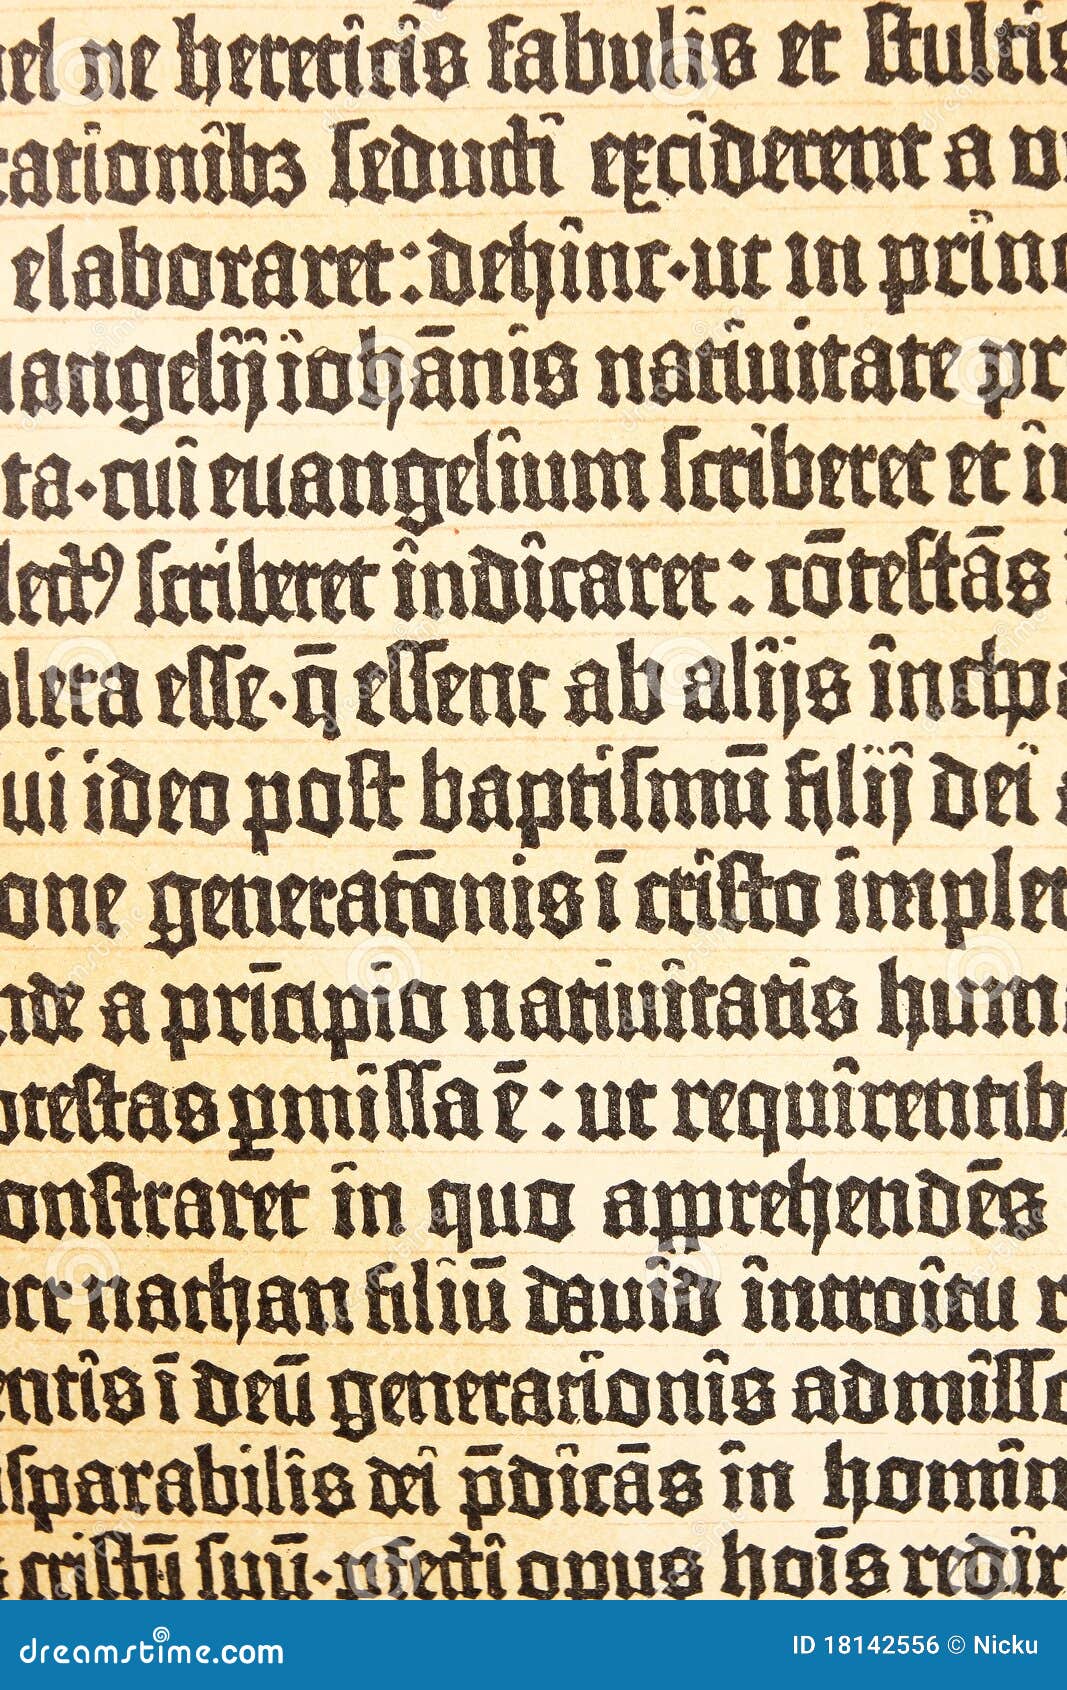 uel ne hereticis fabulis et stultis
tationibꝫ seducti exciderent a
elaboraret: dehinc·ut in princ
uangelij iohānis natiuitate pr
ta·cui euangelium scriberet et in
lectꝰ scriberet indicaret: cōtestās
pleta esse·q̄ essent ab alijs incħpa
ui ideo post baptismū filij dei
one generatōnis ī cristo implet
nde a prīcipio natiuitatis human
otestas ꝑmissa ē: ut requirentib
onstraret in quo apprehendēs
per nathan filiū dauid introitu
entis ī deū generationis admisso
isparabilis dei p̄dicās in homin
cristū suū·ꝑfecti opus hoīs redir
dreamstime.com
ID 18142556 © Nicku